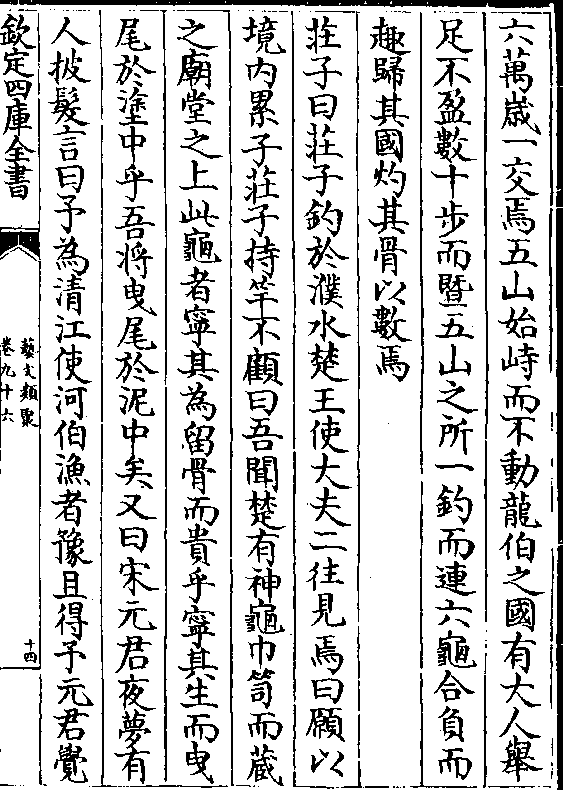 六萬歳一交焉五山始峙而不動龍伯之國有大人舉
足不盈數十歩而曁五山之所一釣而連六龜合負而
趣歸其國灼其骨以數焉
莊子曰莊子釣於濮水楚王使大夫二往見焉曰願以
境内累子莊子持竿不顧曰吾聞楚有神龜巾笥而蔵
之廟堂之上此龜者寧其為留骨而貴乎寧其生而曳
尾於塗中乎吾将曳尾於泥中矣又曰宋元君夜夢有
人披髮言曰予為清江使河伯漁者豫且得予元君覺
欽定四庫全書
藝文類聚
卷九十六
十四